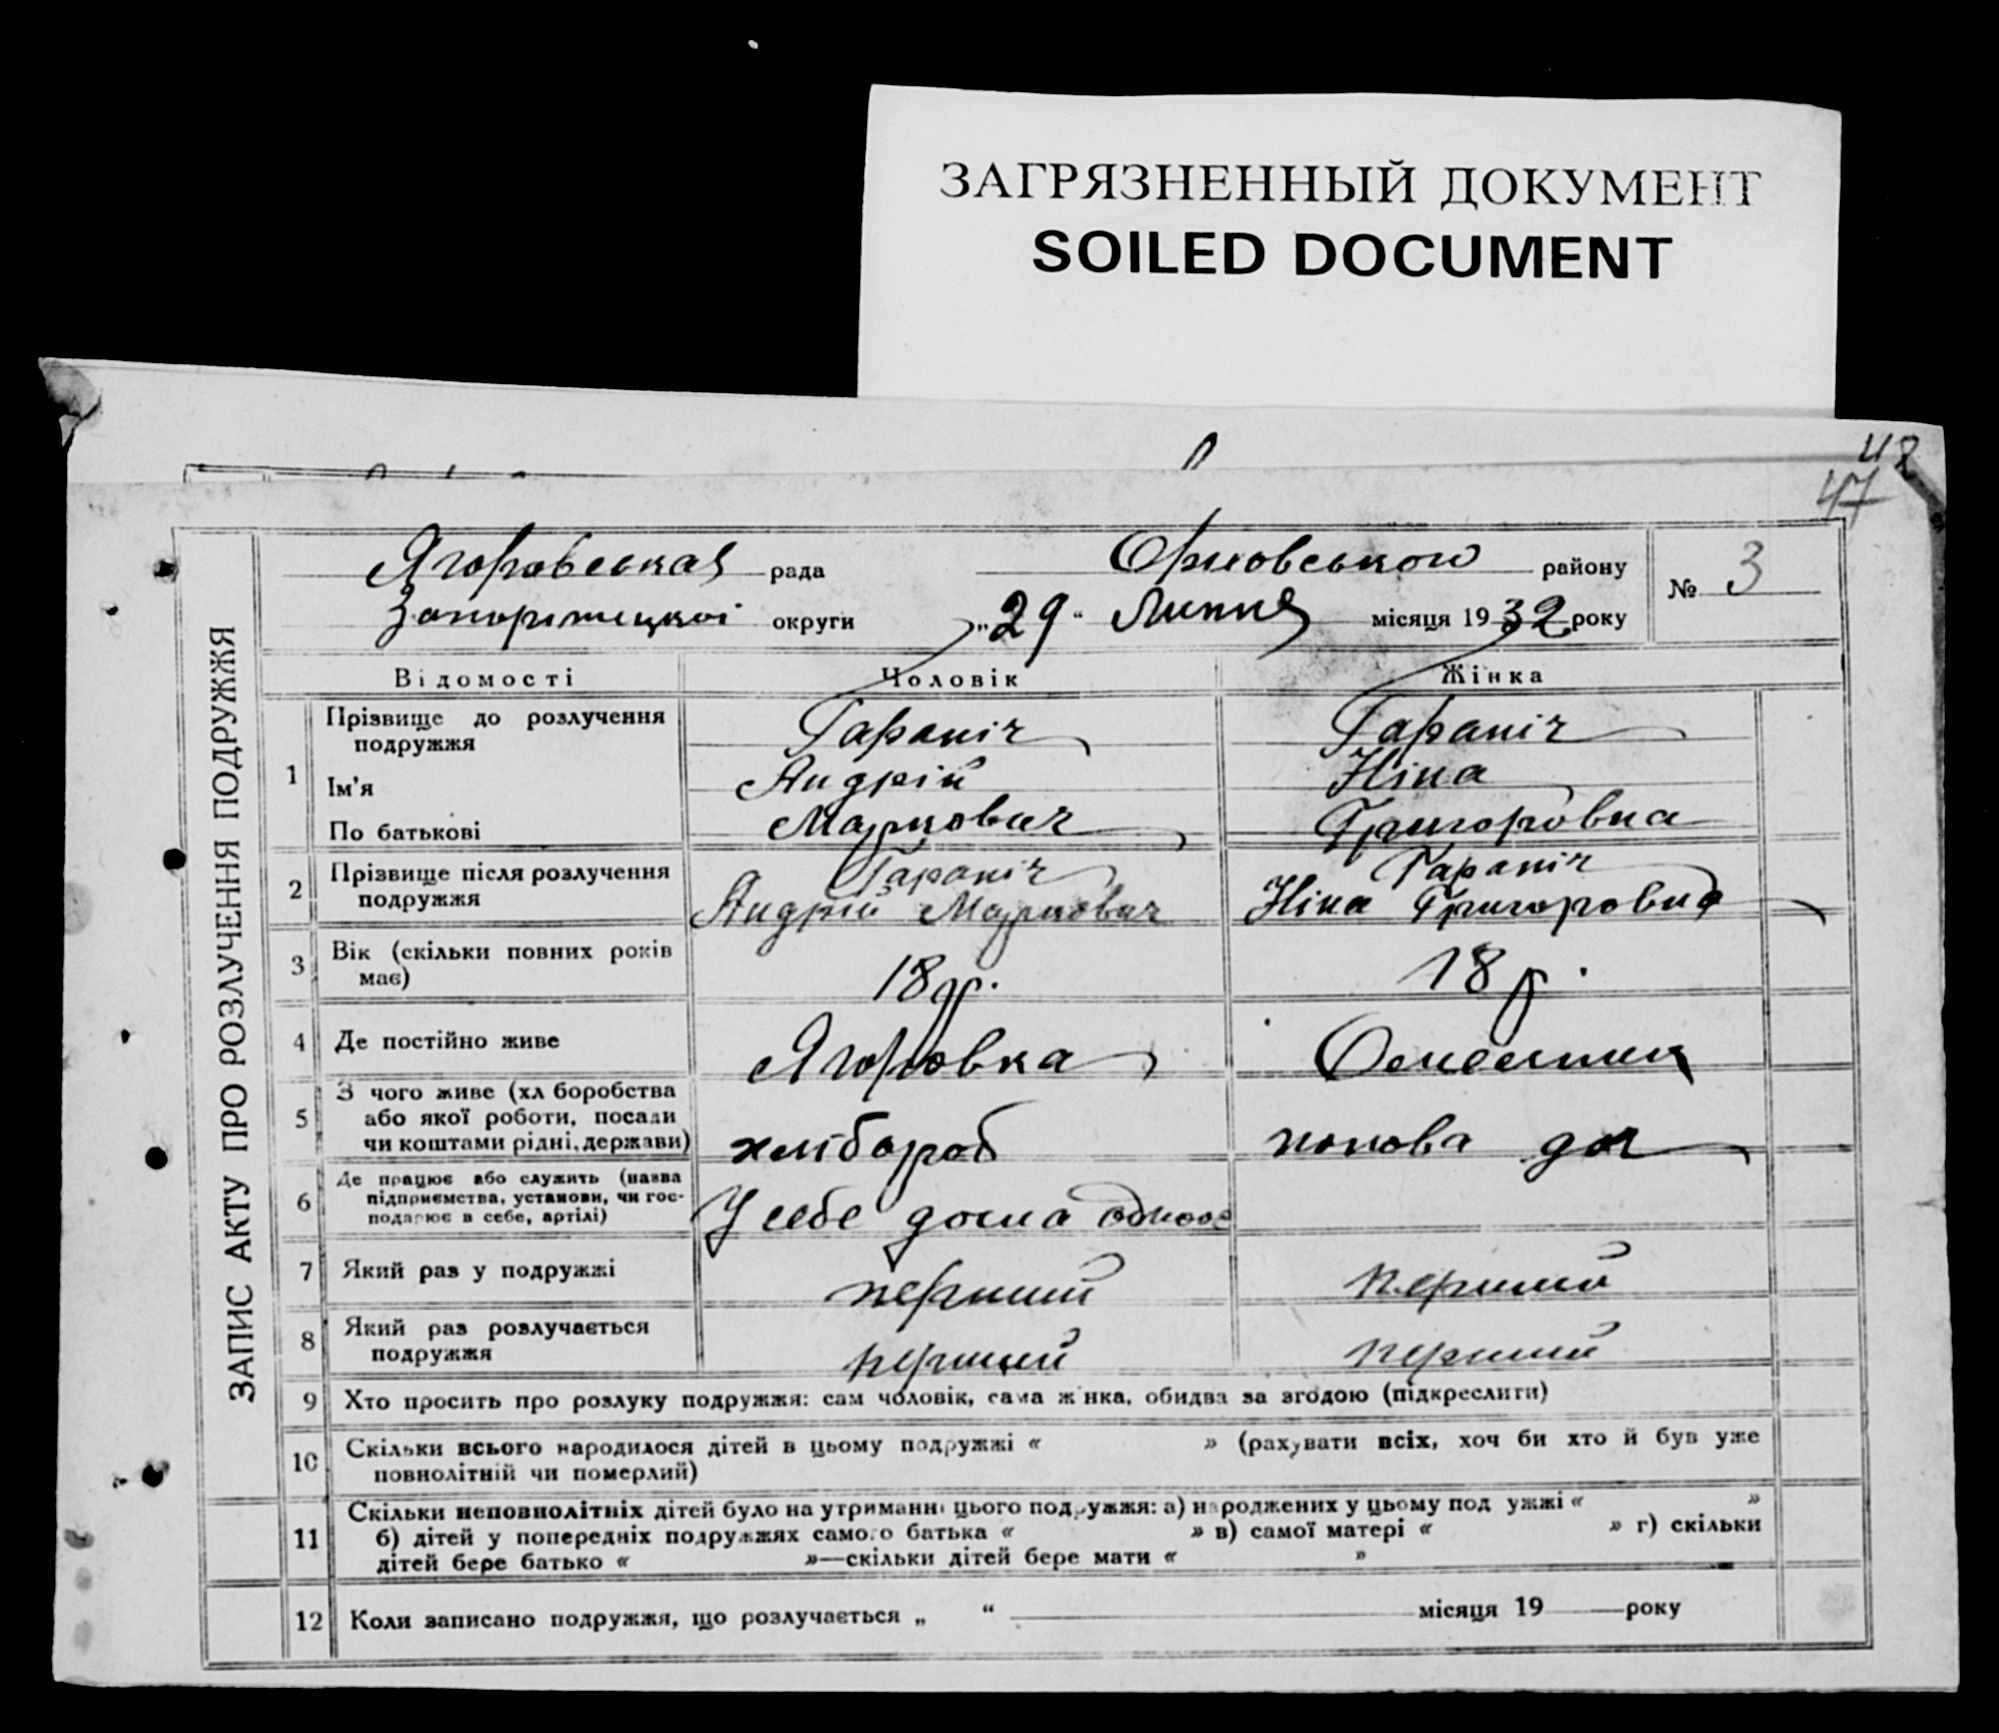 ЗАГРЯЗНЕННЫЙ ДОКУМЕНТ
SOILED DOCUMENT
48
47
ЗАПИС АКТУ ПРО РОЗЛУЧЕННЯ ПОДРУЖЖЯ
Ягоровська рада району
№ 3
округи „29“ Липня місяця 1932 року
Відомості Чоловік Жінка
1 Прізвище до розлучення подружжя Гарапіч Гарапіч
Ім'я Андрій Ніна
По батькові Маркович Григоровна
2 Прізвище після розлучення подружжя Гарапіч Андрій Маркович Гарапіч Ніна Григоровна
3 Вік (скільки повних років має) 18 р. 18 р.
4 Де постійно живе Ягоровка
5 З чого живе (хл боробства або якої роботи, посади чи коштами рідні, держави) хлібороб попова доч
6 Де працює або служить (назва підприємства, установи, чи господарює в себе, артілі) У себе дома
7 Який раз у подружжі перший перший
8 Який раз розлучається подружжя перший перший
9 Хто просить про розлуку подружжя: сам чоловік, сама жінка, обидва за згодою (підкреслити)
10 Скільки всього народилося дітей в цьому подружжі « » (рахувати всіх, хоч би хто й був уже
повнолітній чи померлий)
11 Скільки неповнолітніх дітей було на утриманні цього подружжя: а) народжених у цьому подружжі « »
б) дітей у попередніх подружжях самого батька « » в) самої матері « » г) скільки
дітей бере батько « »—скільки дітей бере мати « »
12 Коли записано подружжя, що розлучається „ “ місяця 19 року